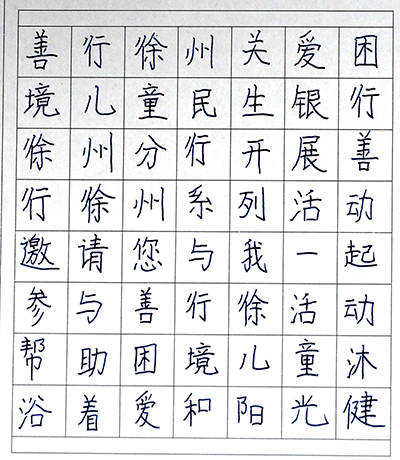 善行徐州关爱困
境儿童民生银行
徐州分行开展善
行徐州系列活动
邀请您与我一起
参与善行徐活动
帮助困境儿童沐
浴着爱和阳光健